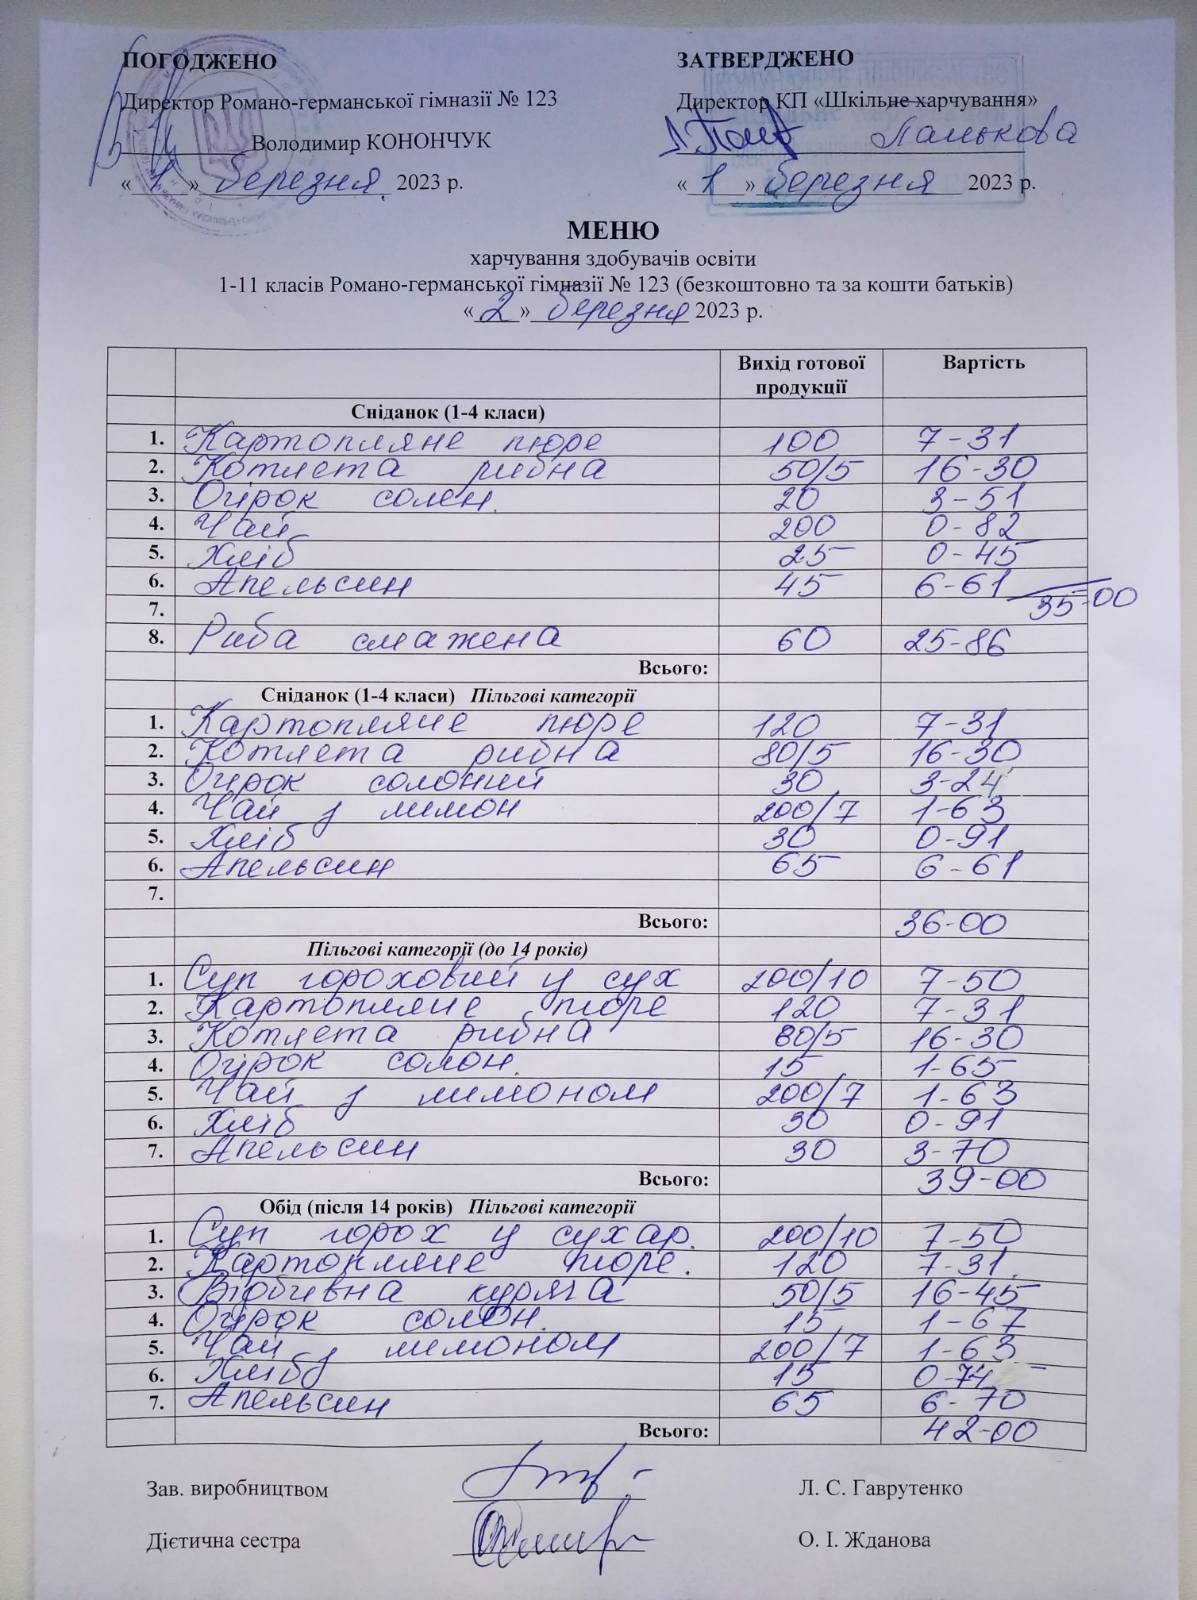 ПОГОДЖЕНО
Директор Романо-германської гімназії № 123
Володимир КОНОНЧУК
« 1 » березня 2023 р.
ЗАТВЕРДЖЕНО
Директор КП «Шкільне харчування»
Панькова
« 1 » березня 2023 р.
МЕНЮ
харчування здобувачів освіти
1-11 класів Романо-германської гімназії № 123 (безкоштовно та за кошти батьків)
« 2 » березня 2023 р.
Вихід готової продукції Вартість
Сніданок (1-4 класи)
1. Картопляне пюре 100 7-31
2. Котлета рибна 50/5 16-30
3. Огірок солен. 20 3-51
4. Чай 200 0-82
5. Хліб 25 0-45
6. Апельсин 45 6-61
35-00
7.
8. Риба смажена 60 25-86
Всього:
Сніданок (1-4 класи) Пільгові категорії
1. Картопляне пюре 120 7-31
2. Котлета рибна 80/5 16-30
3. Огірок солоний 30 3-24
4. Чай з лимон 200/7 1-63
5. Хліб 30 0-91
6. Апельсин 65 6-61
7.
Всього: 36-00
Пільгові категорії (до 14 років)
1. Суп гороховий у сух 200/10 7-50
2. Картопляне пюре 120 7-31
3. Котлета рибна 80/5 16-30
4. Огірок солон. 15 1-65
5. Чай з лимоном 200/7 1-63
6. Хліб 30 0-91
7. Апельсин 30 3-70
Всього: 39-00
Обід (після 14 років) Пільгові категорії
1. Суп горох у сухар. 200/10 7-50
2. Картопляне пюре. 120 7-31
3. Відбивна куряча 50/5 16-45
4. Огірок солон. 15 1-67
5. Чай з лимоном 200/7 1-63
6. Хліб 15 0-74
7. Апельсин 65 6-70
Всього: 42-00
Зав. виробництвом Л. С. Гаврутенко
Дієтична сестра О. І. Жданова